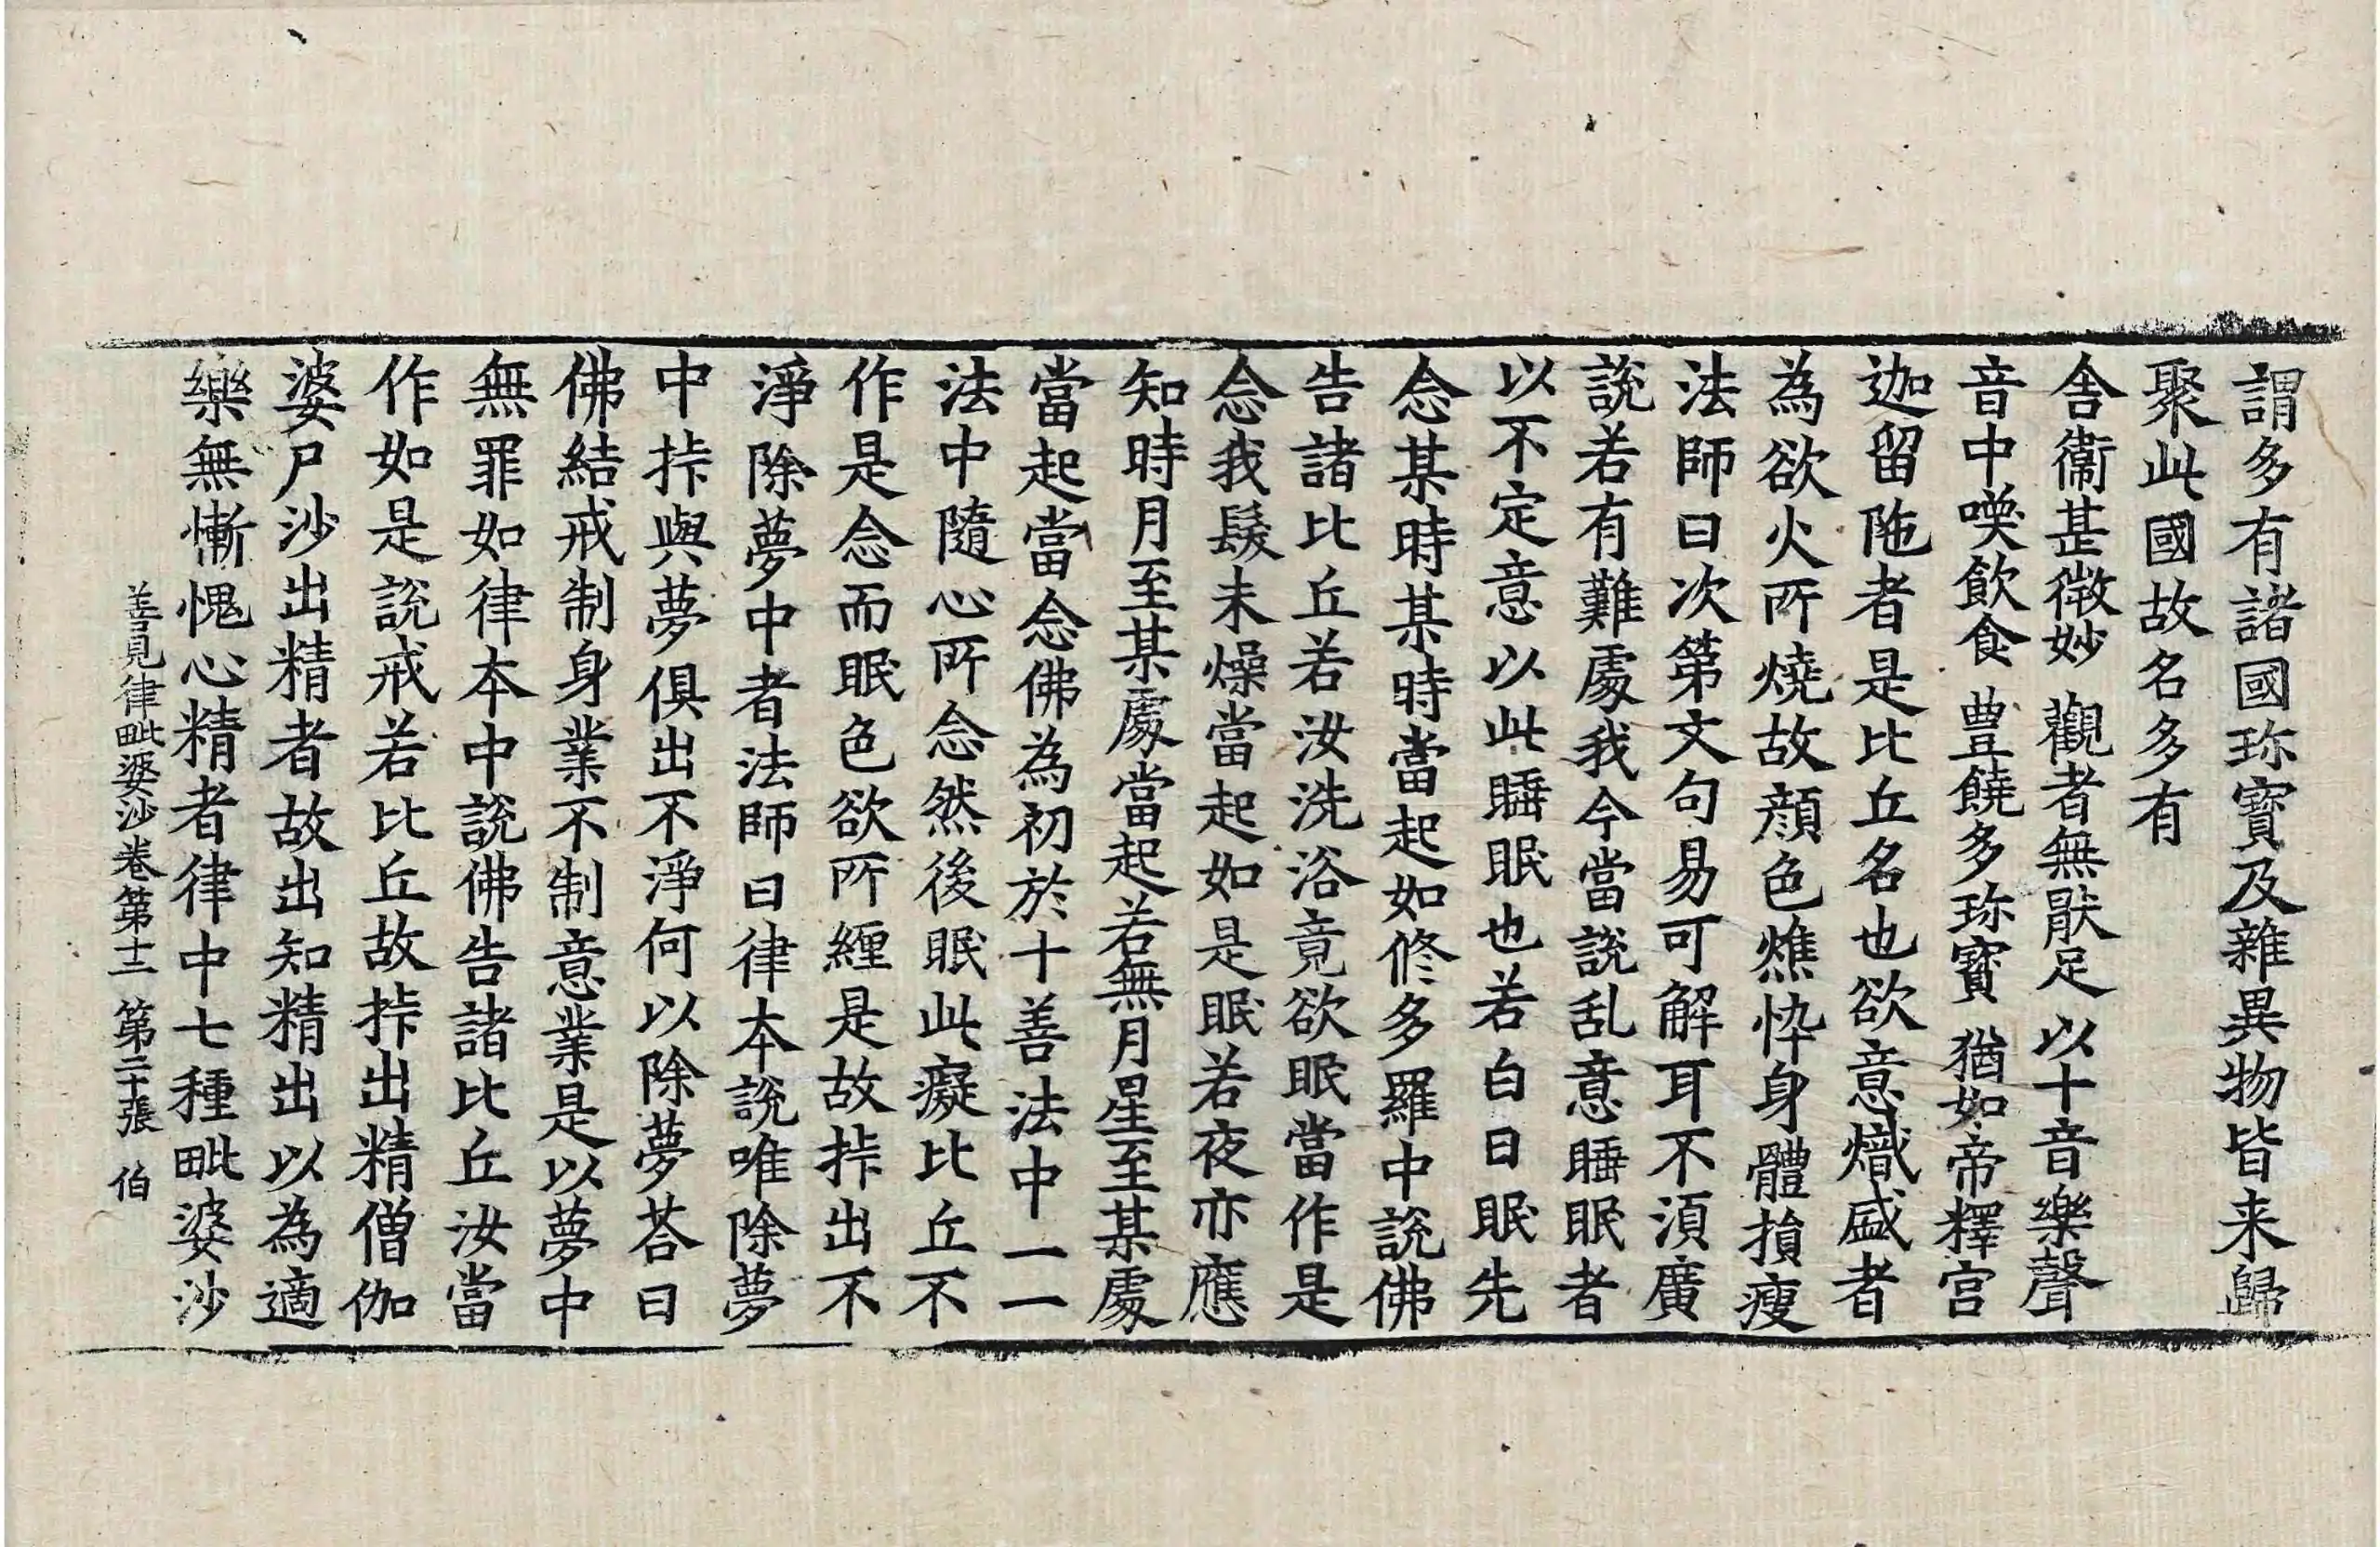 謂多有諸國珎寳及雜異物皆来歸
聚此國故名多有
舎衞甚微妙 觀者無猒足 以十音樂聲
音中喚飲食 豊饒多珎寳 猶如帝釋宫
迦留陁者是比丘名也欲意熾盛者
為欲火所燒故顔色燋悴身體損瘦
法師曰次第文句易可解耳不湏廣
說若有難處我今當說乱意睡眠者
以不定意以此睡眠也若白日眠先
念某時某時當起如修多羅中說佛
告諸比丘若汝洗浴竟欲眠當作是
念我髮未燥當起如是眠若夜亦應
知時月至某處當起若無月星至某處
當起當念佛為初於十善法中一一
法中隨心所念然後眠此癡比丘不
作是念而眠色欲所纏是故挊出不
淨除夢中者法師曰律本說唯除夢
中挊與夢俱出不淨何以除夢荅曰
佛結戒制身業不制意業是以夢中
無罪如律本中說佛告諸比丘汝當
作如是說戒若比丘故挊出精僧伽
婆尸沙出精者故出知精出以為適
樂無慚愧心精者律中七種毗婆沙
善見律毗婆沙卷第十二 第二十張 伯